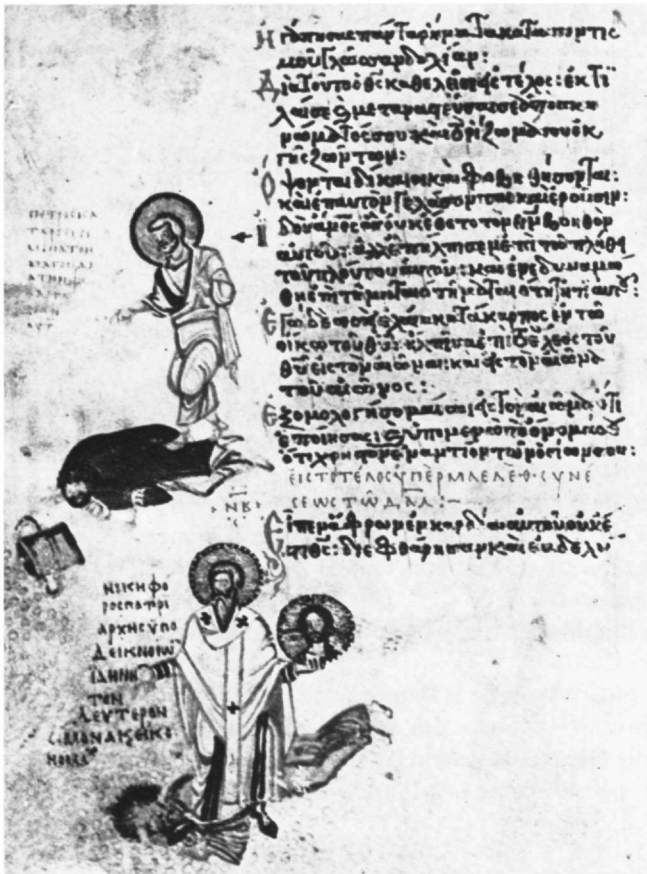 Ἠγάπησας πάντα τὰ ῥήματα καταποντισ
μοῦ γλῶσσαν δολίαν:
Διὰ τοῦτο ὁ θς καθελεῖ σε εἰς τέλος: ἐκτί
λαι σε μεταναστεύσαι σε ἀπὸ σκη
νώματός σου καὶ τὸ ῥίζωμά σου ἐκ
γῆς ζώντων:
Ὄψονται δίκαιοι καὶ φοβηθήσονται:
καὶ ἐπ αὐτὸν γελάσονται καὶ ἐροῦσιν:
ἰδοὺ ἄνος ὃς οὐκ ἔθετο τὸν θν βοηθὸν
αὐτοῦ: ἀλλ ἐπήλπισεν ἐπὶ τῷ πλήθει
τοῦ πλούτου αὐτοῦ: καὶ ἐνεδυναμώ
θη ἐπὶ τῇ ματαιότητι
Ἐγὼ δὲ ὡσεὶ ἐλαία κατάκαρπος ἐν τῷ
οἴκω τοῦ θυ: ἤλπισα ἐπὶ τὸ ἔλεος τοῦ
θυ εἰς τὸν αἰῶνα: καὶ εἰς τὸν αἰῶνα
τοῦ αἰῶνος:
Ἐξομολογήσομαί σοι εἰς τὸν αἰῶνα ὅτι
ἐποίησας: καὶ ὑπομενῶ τὸ ὄνομά σου
ὅτι χρηστὸν ἐναντίον τῶν ὁσίων σου:
ΕΙΣ ΤΟ ΤΕΛΟΣ ΥΠΕΡ ΜΑΕΛΕΘ· ΣΥΝΕ
ΣΕΩΣ ΤΩ ΔΑΔ:
Εἶπεν ἄφρων ἐν καρδία αὐτοῦ οὐκ ἔ
στι θς: διεφθάρησαν καὶ ἐβδελύ
ΠΕΤΡΟΣ ΚΑ
ΝΒ
ΝΙΚΗΦΟ
ΡΟΣ ΠΑΤΡΙ
ΑΡΧΗΣ ΥΠΟ
ΔΕΙΚΝΟΙΩ
ΙΑΝΝΗ
ΤΟΝ
ΔΕΥΤΕΡΟΝ
ΣΙΜΟΝΑ Κ ΕΙΚΟ
ΝΟΜΑΧ